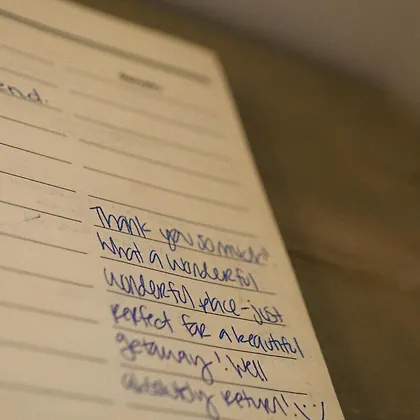 end.
Thank you so much!
What a wonderful
wonderful place-just
perfect for a beautiful
getaway! Well
absolutely return! :)